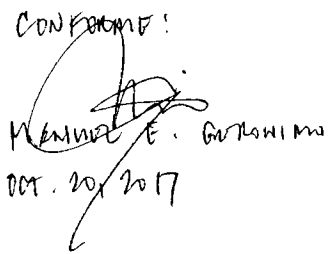 CONFORME:
MANUEL E. GERONIMO
OCT. 20, 2017